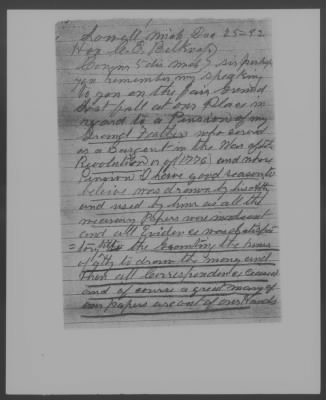 Lowell, Mich Dec 25-92
Hon C. E. Belknap
5 dis Mich Sir perhaps
you remember my speaking
to you on the fair Ground
last fall at our Place in
regard to a Pension of my
Grand Father who served
as a Surgent in the War of the
Revolution of 1776 and whose
Pension I have good reason to
beleive was drawn by his
and used by him as all the
necessary Papers were made out
and all Evidence was satisfac
=tory to the Countres the heirs
to draw the money and
then all Correspondence ceased
and of course a great many of
our papers are out of our Hands